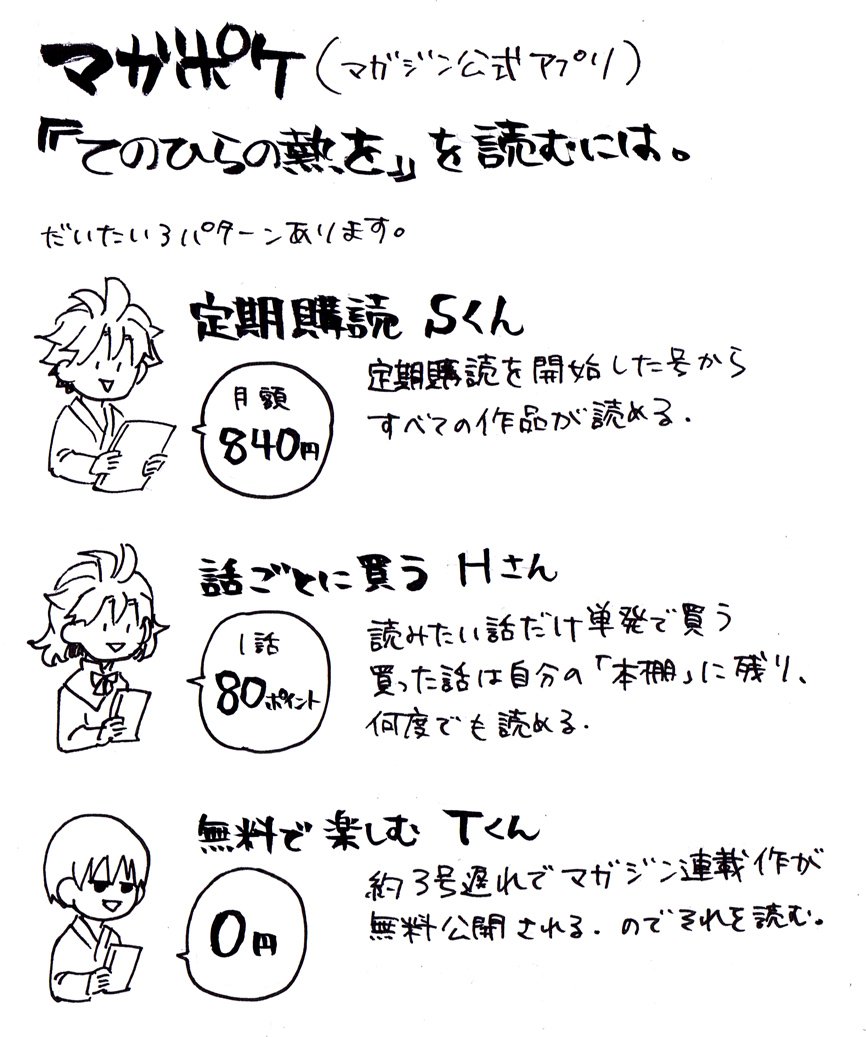 マガポケ（マガジン公式アプリ）
『てのひらの熱を』を読むには。
だいたい3パターンあります。
定期購読 Sくん
月額
840円
定期購読を開始した号から
すべての作品が読める.
話ごとに買う Hさん
1話
80ポイント
読みたい話だけ単発で買う
買った話は自分の「本棚」に残り、
何度でも読める.
無料で楽しむ Tくん
0円
約3号遅れでマガジン連載作が
無料公開される.のでそれを読む。